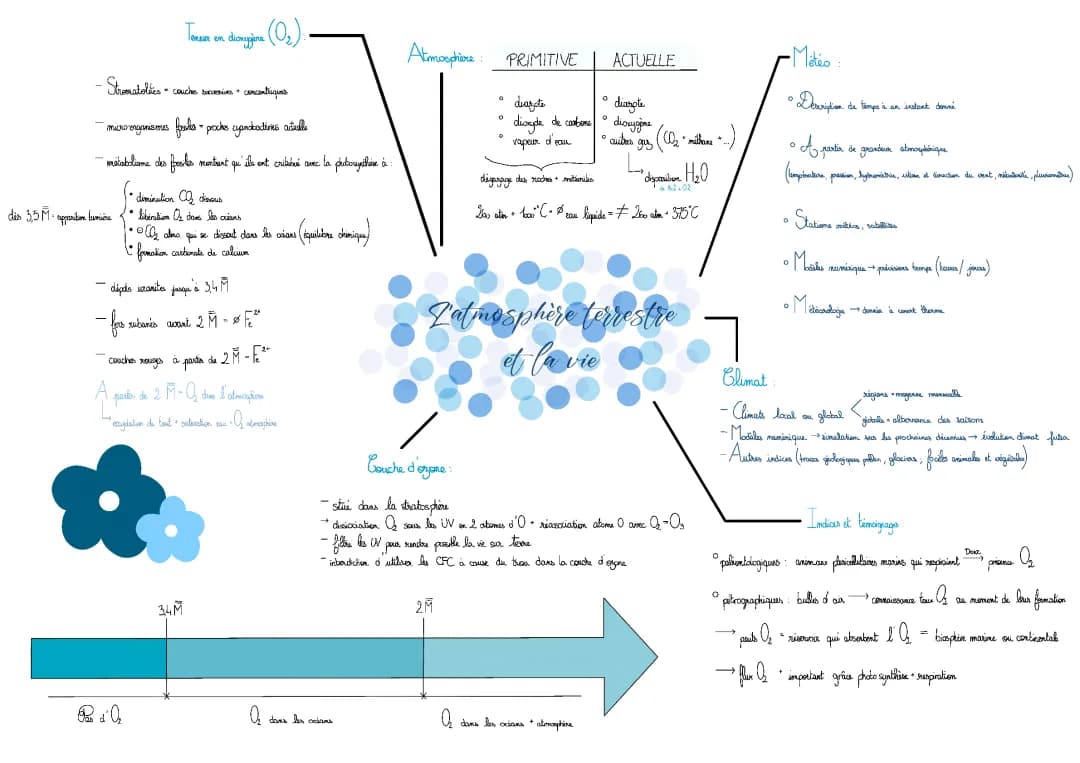 L'atmosphère terrestre
et la vie
Teneur en dioxygène (O₂) :
- Stromatolites = couches successives + concentriques
- micro-organismes fossiles = proches cyanobactéries actuelle
- métabolisme des fossiles montrent qu'ils ont contribué avec la photosynthèse à :
dès 3,5 M̄ - apparition lumière
• diminution CO₂ dissous
• libération O₂ dans les océans
• CO₂ atmo qui se dissout dans les océans (équilibre chimique)
• formation carbonate de calcium
- dépôts uranites jusqu'à 3,4 M̄
- fers rubanés avant 2 M̄ - ø Fe²⁺
- couches rouges à partir de 2 M̄ - Fe²⁺
A partir de 2 M̄ - O₂ dans l'atmosphère
oxydation de tout + saturation eau - O₂ atmosphère
Atmosphère :
PRIMITIVE ACTUELLE
° diazote
° dioxyde de carbone
° vapeur d'eau
dégazage des roches + météorites
° diazote
° dioxygène
° autres gaz (CO₂ + méthane + ...)
disparition H₂O
260 atm + 375°C
Météo :
° Description du temps à un instant donné
° A partir de grandeur atmosphérique
(température, pression, hygrométrie, vitesse et direction du vent, nébulosité, pluviométrie)
° Stations météos, satellites
° Modèles numérique → prévisions temps (heures / jours)
° Météorologie → donnée à court terme
Climat :
- Climats local ou global
régions = moyenne mensuelle
globale = alternance des saisons
- Modèles numérique → simulation sur les prochaines décennies → évolution climat futur
- Autres indices (traces géologiques pollen, glaciers, fossiles animales et végétales)
Indices et témoignage
° paléontologiques : animaux pluricellulaires marins qui respiraient Donc → présence O₂
° pétrographiques : bulles d'air → connaissance taux O₂ au moment de leur formation
→ puits O₂ = réservoir qui absorbent l'O₂ = biosphère marine ou continentale
→ flux O₂ + important grâce photosynthèse + respiration
Couche d'ozone :
- situé dans la stratosphère
→ dissociation O₂ sous les UV en 2 atomes d'O + réassociation atome O avec O₂ = O₃
- filtre les UV pour rendre possible la vie sur terre
- interdiction d'utiliser les CFC à cause du trou dans la couche d'ozone
3,4 M̄
2 M̄
Pas d'O₂
O₂ dans les océans
O₂ dans les océans + atmosphère